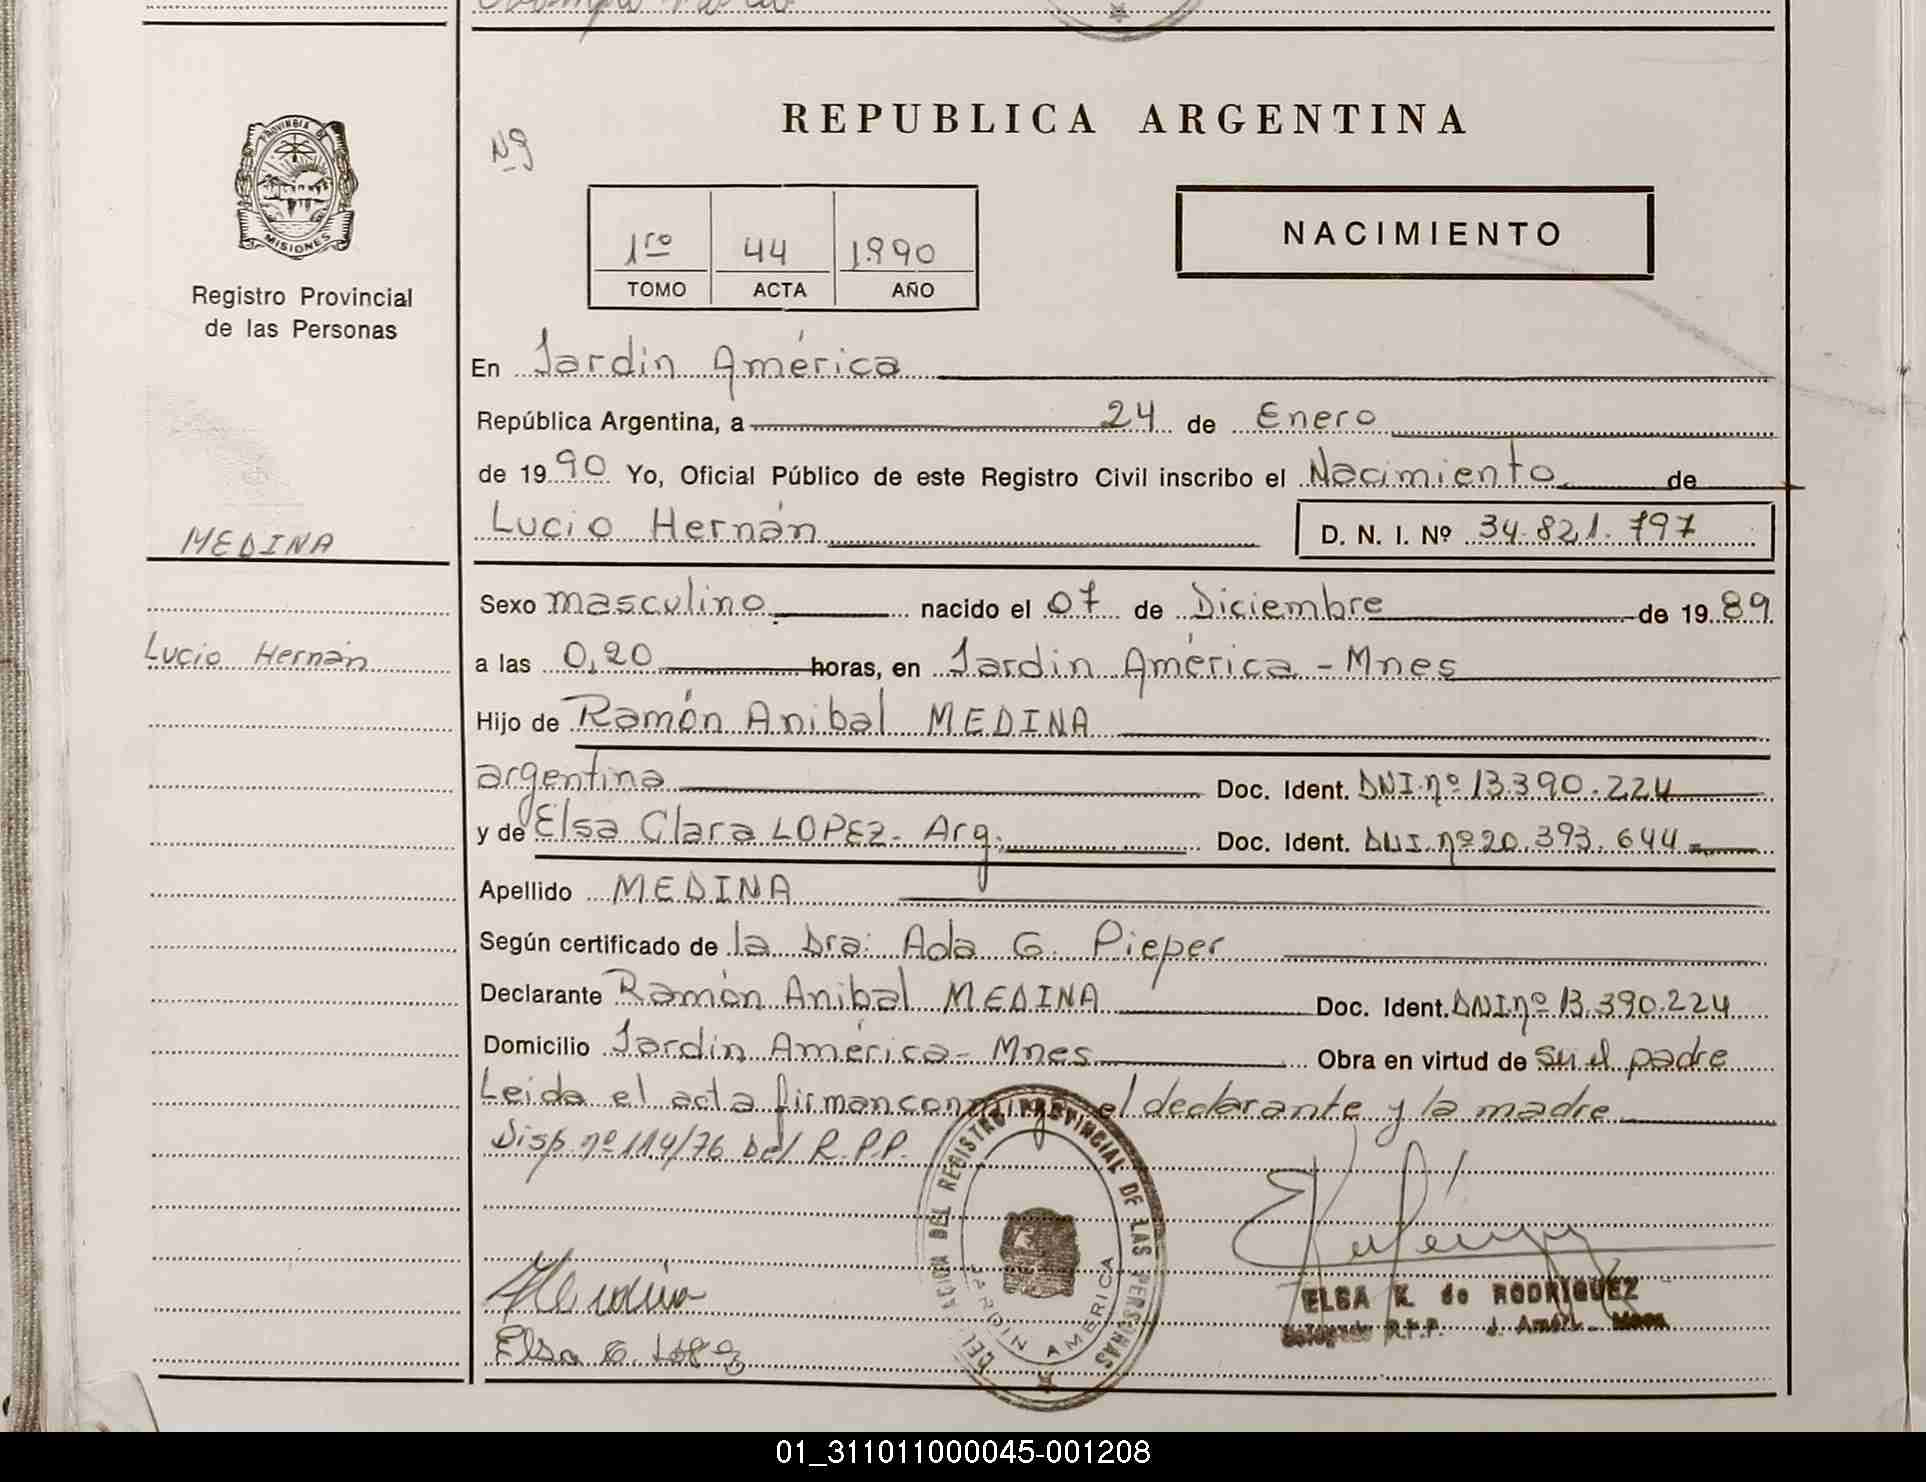 Nº
REPUBLICA ARGENTINA
PROVINCIA DE
MISIONES
Registro Provincial
de las Personas
1ro 44 1990
TOMO ACTA AÑO
NACIMIENTO
En Jardin América
República Argentina, a 24 de Enero
de 1990 Yo, Oficial Público de este Registro Civil inscribo el Nacimiento de
MEDINA
Lucio Hernán D. N. I. Nº 34.821.797
Sexo masculino nacido el 07 de Diciembre de 1989
Lucio Hernán
a las 0,20 horas, en Jardin América - Mnes
Hijo de Ramón Anibal MEDINA
argentina Doc. Ident. DNI.nº 13.390.224
y de Elsa Clara LOPEZ- Arg. Doc. Ident. DNI.nº20.393.644
Apellido MEDINA
Según certificado de la Dra: Ada G. Pieper
Declarante Ramón Anibal MEDINA Doc. Ident. DNI.nº 13.390.224
Domicilio Jardin América- Mnes Obra en virtud de su el padre
Leida el acta firman conmigo, el declarante y la madre
Disp. nº 114/76 Del R.P.P.
DEL REGISTRO PROVINCIAL DE LAS PERSONAS
JARDIN AMERICA
Medina
Elsa C. López
ELSA K. de RODRIGUEZ
Delegado R.P.P. J. Amér. Mnes
01_311011000045-001208